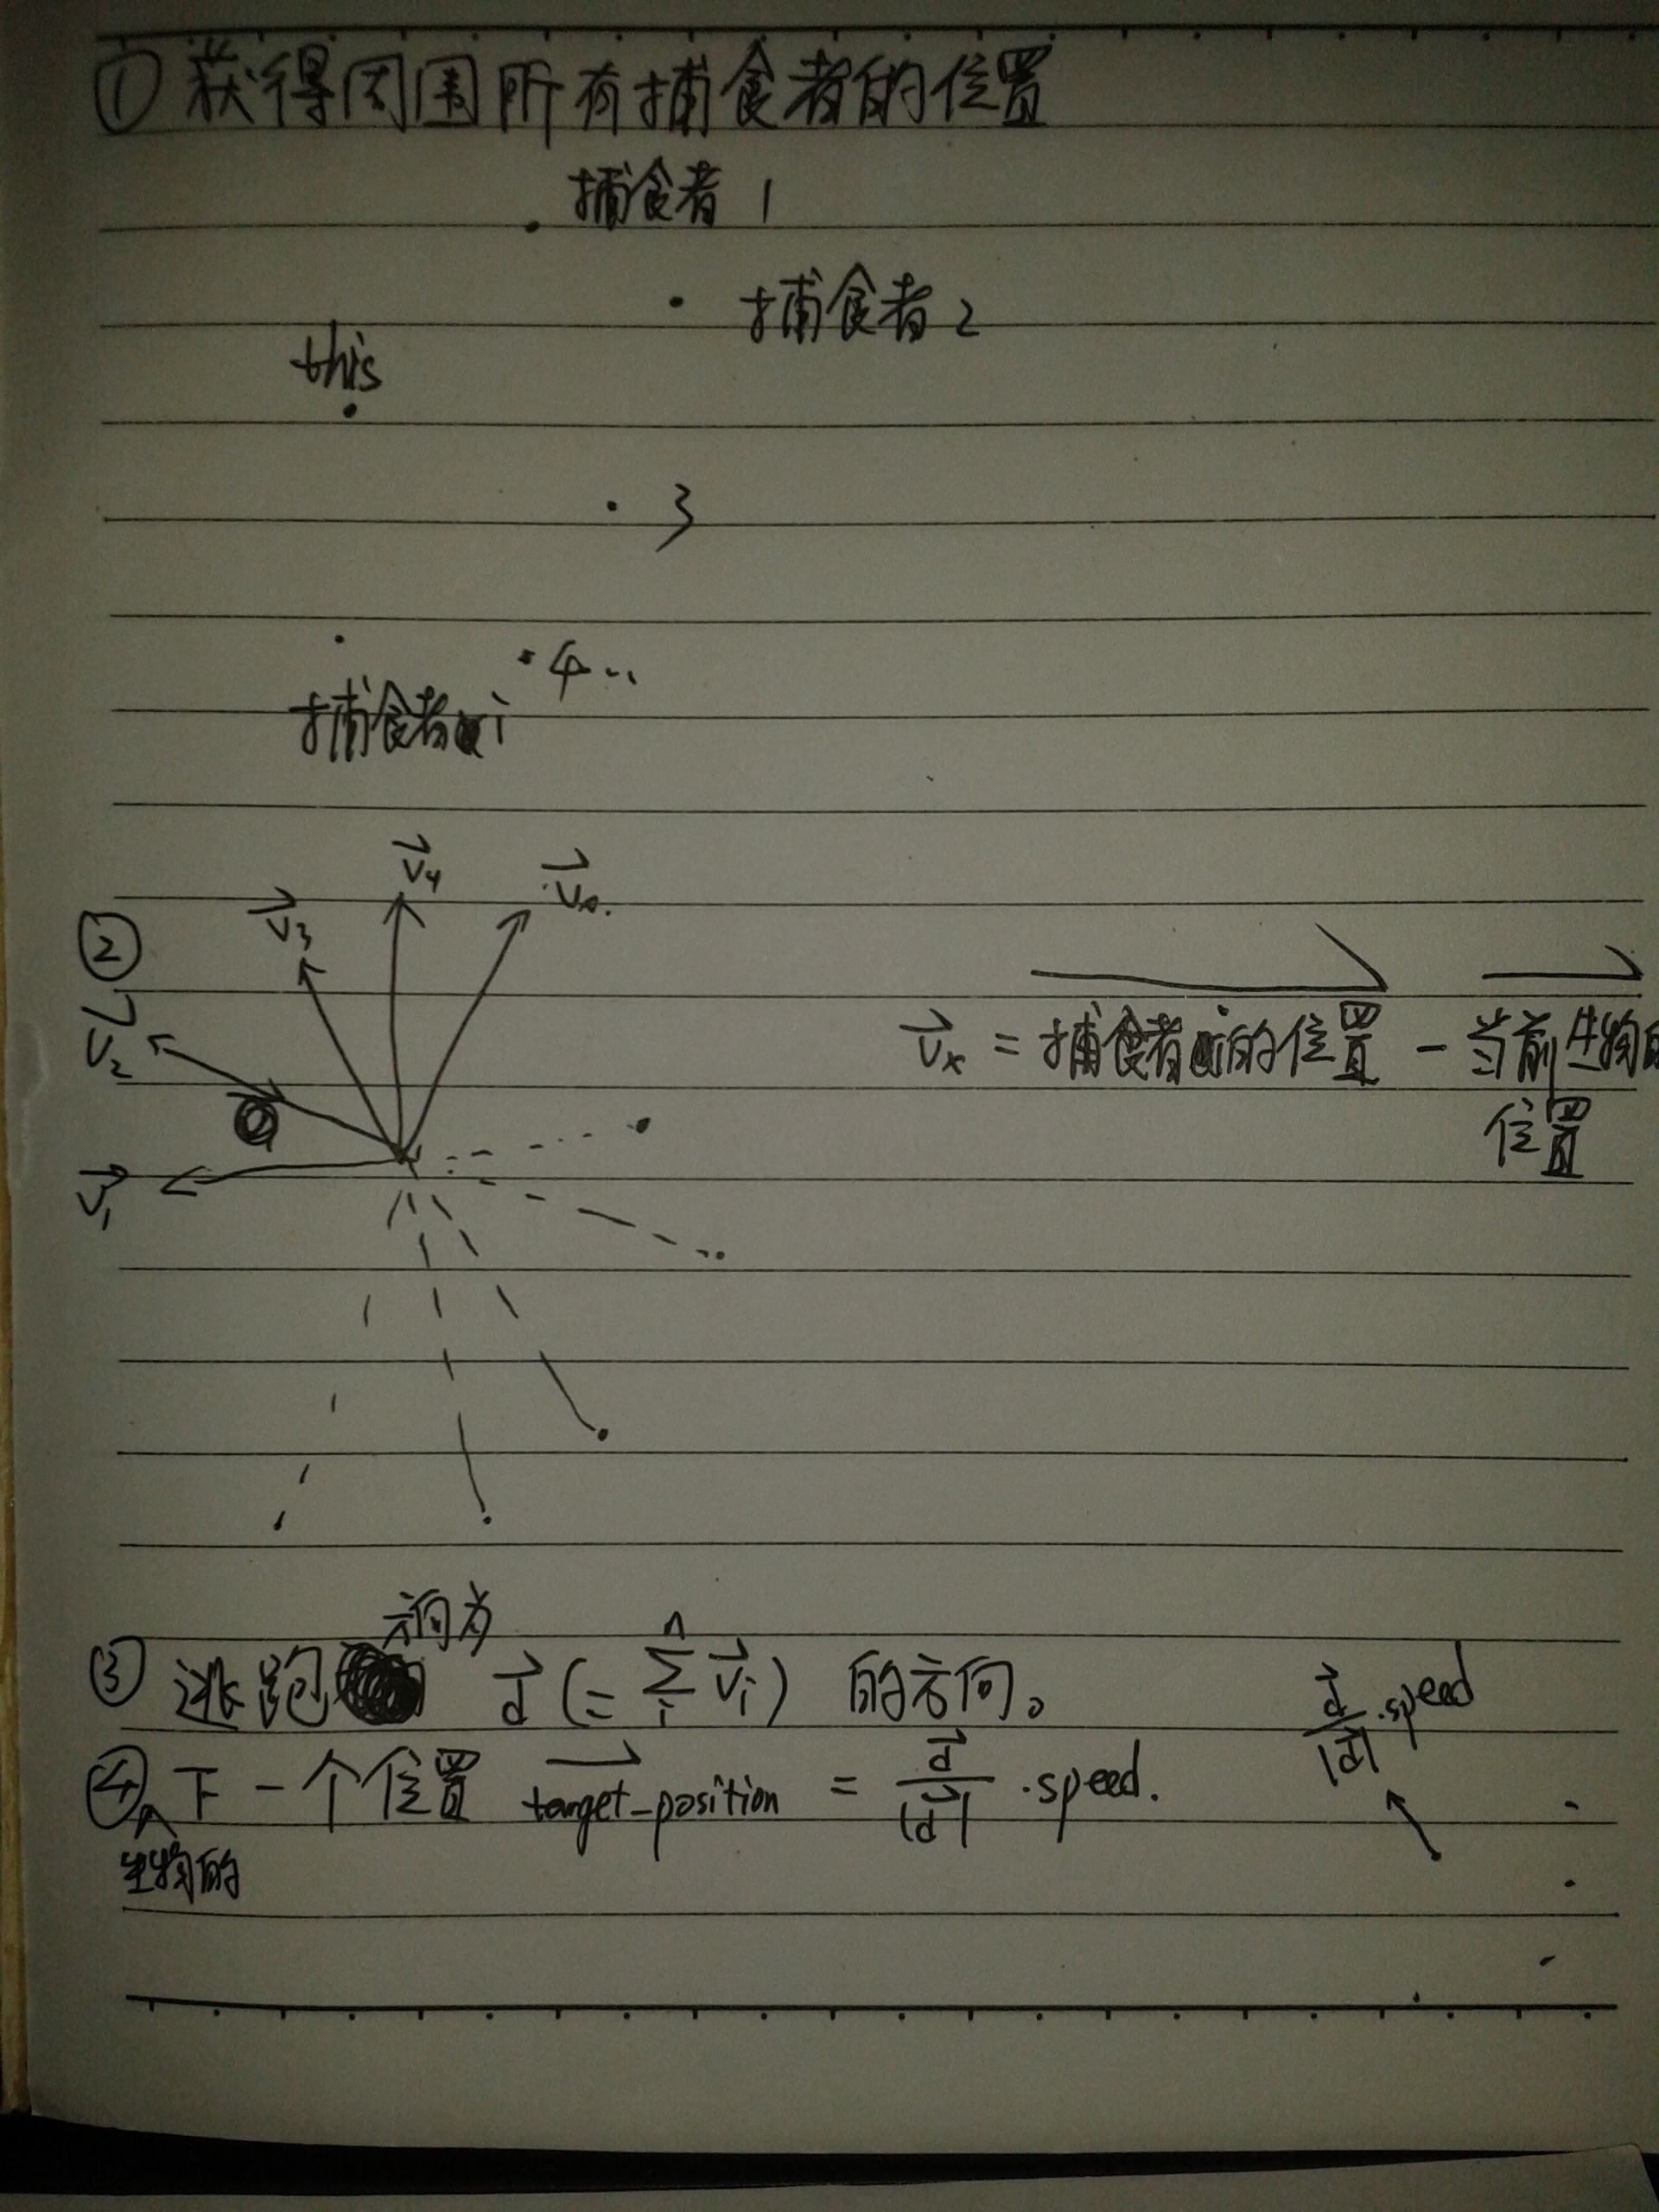 ① 获得周围所有捕食者的位置
捕食者 1
捕食者 2
this
3
4...
捕食者i
②
v₄
v₃
v₂
v₁
vₓ = 捕食者i的位置 - 当前生物的
位置
③ 逃跑方向为 d (= Σ vᵢ) 的方向。
d/|d| ·speed
④ 生物的下一个位置 target_position = d/|d| ·speed.